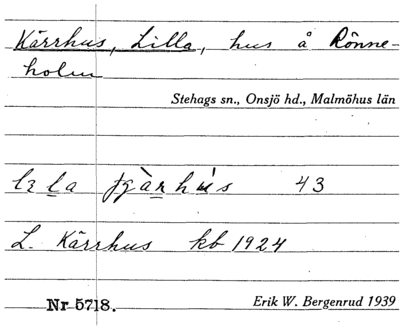 Kärrhus, Lilla, hus å Rönne-
holm
Stehags sn., Onsjö hd., Malmöhus län
43
L. Kärrhus kb 1924
Nr 5718. Erik W. Bergenrud 1939